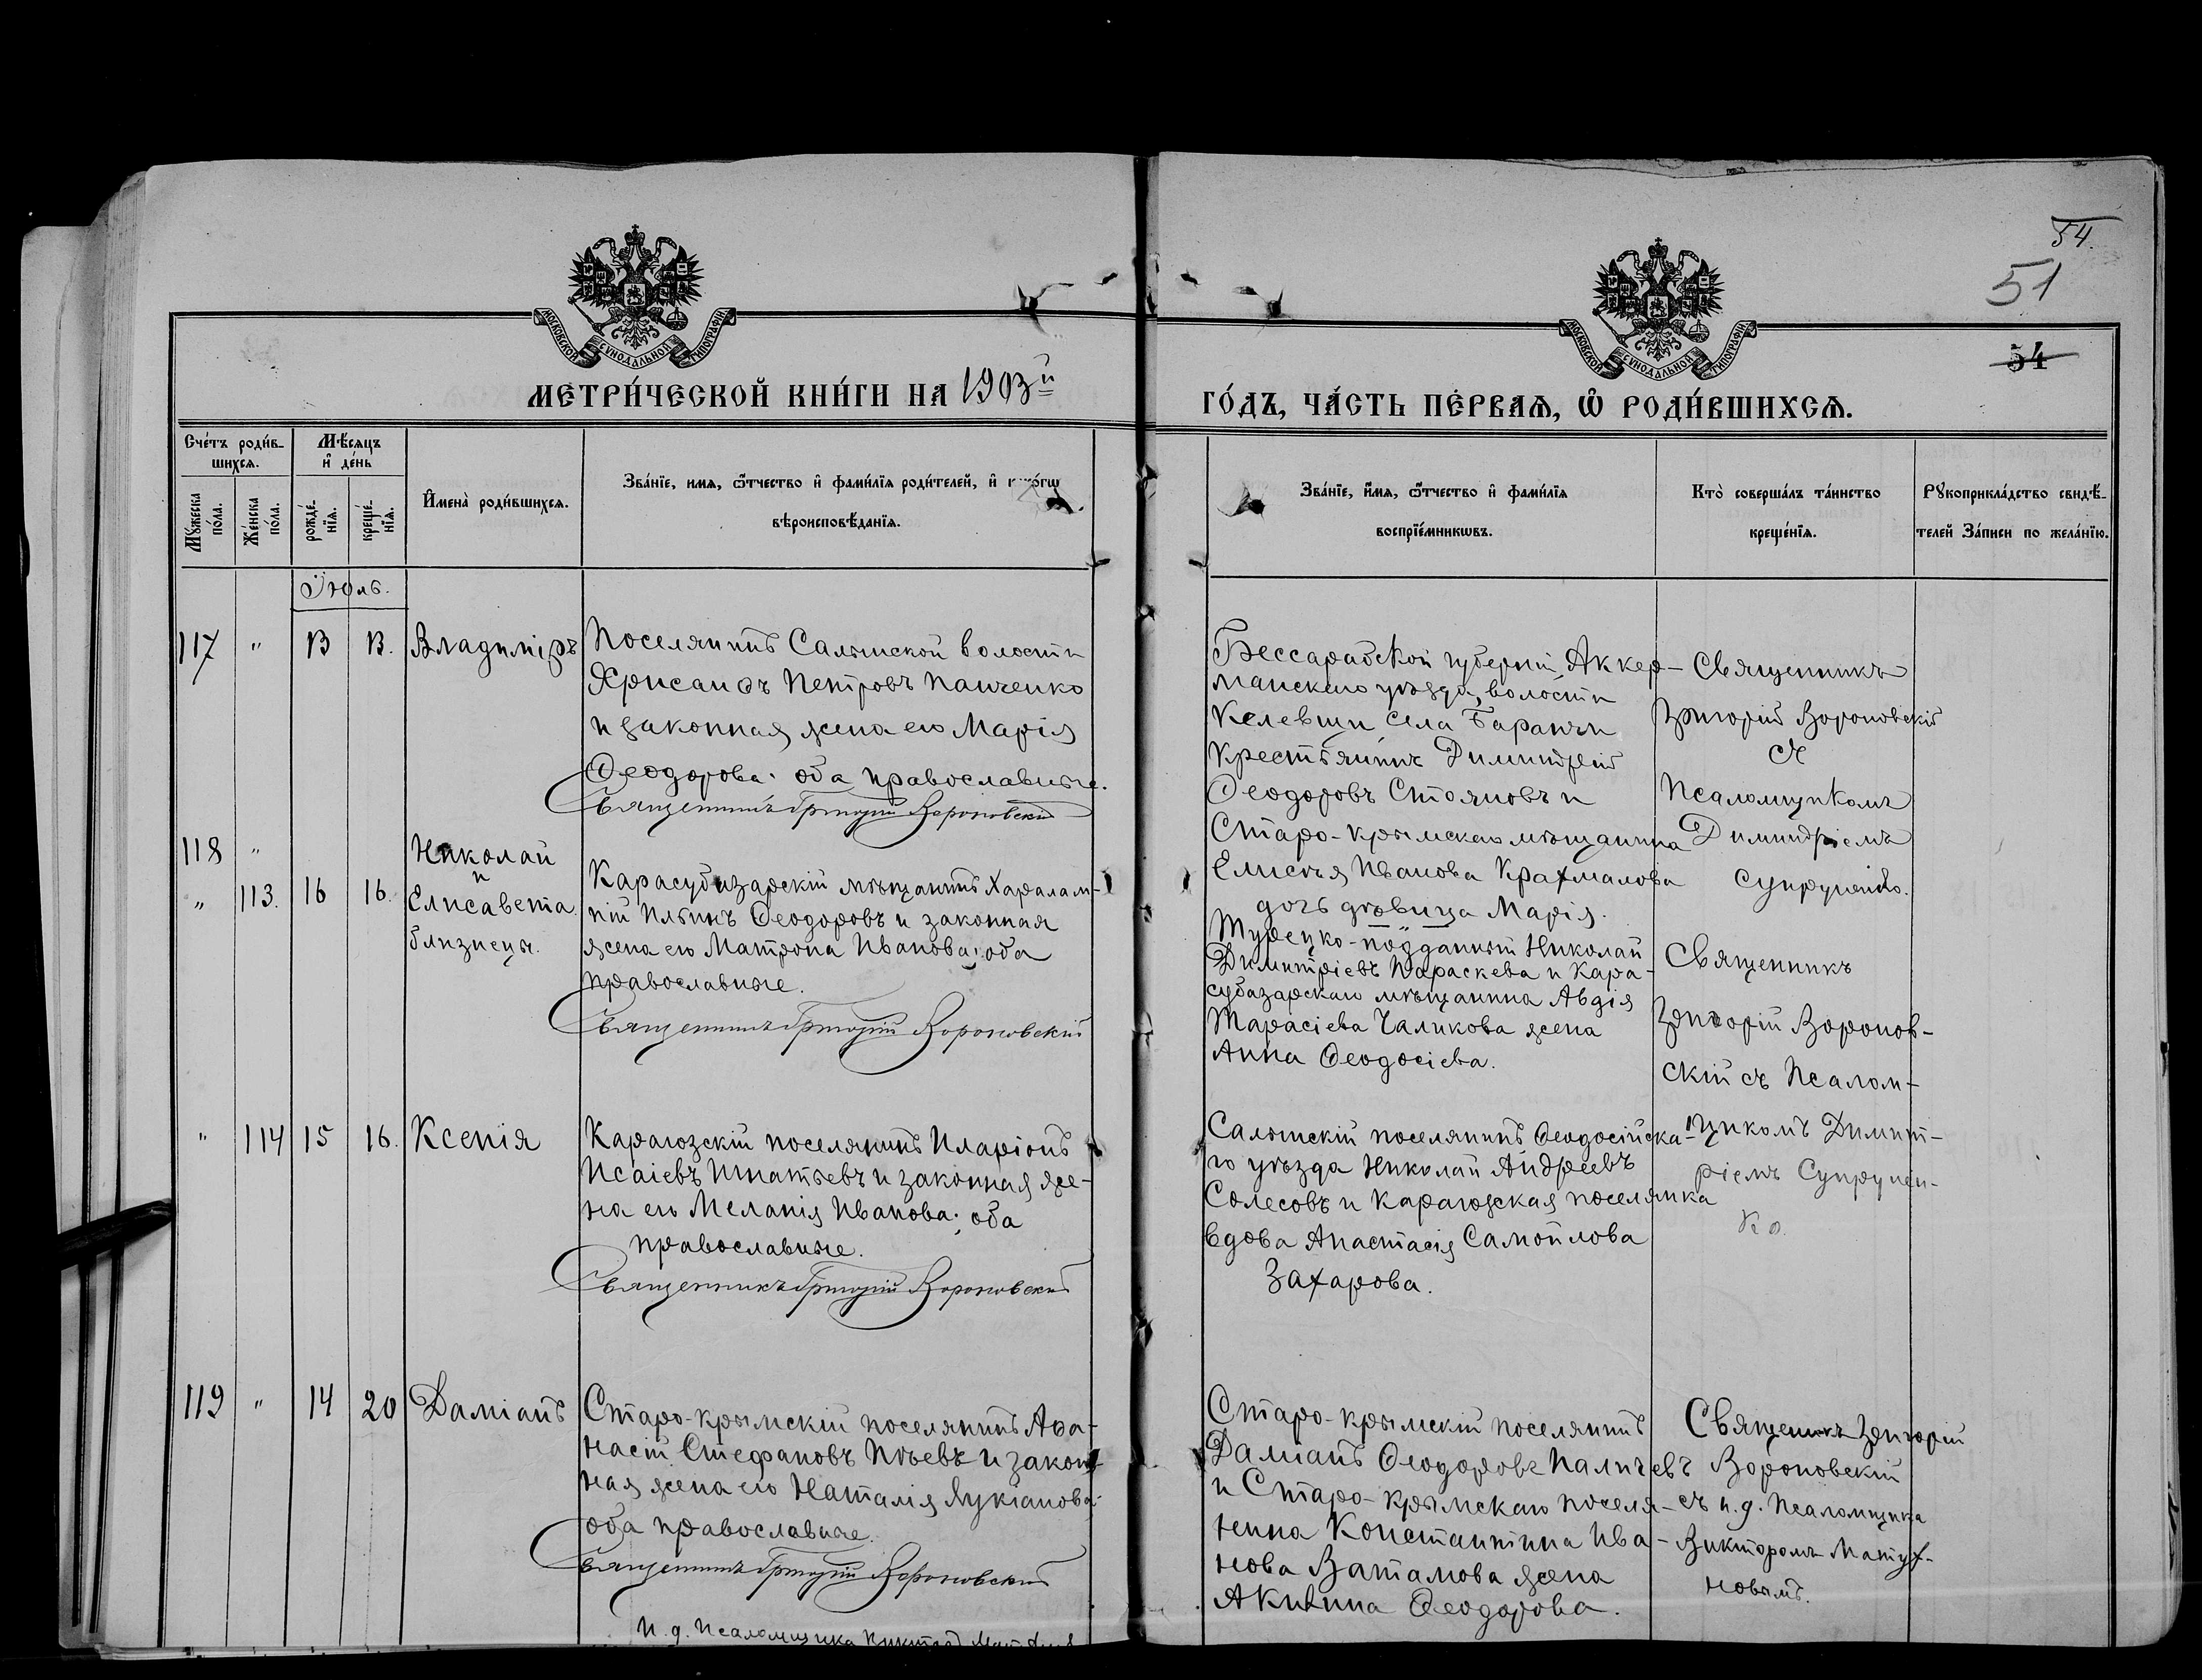 54.
51
54
МОСКОВСКОЙ СѴНОДАЛЬНОЙ ТИПОГРАФІИ
МОСКОВСКОЙ СѴНОДАЛЬНОЙ ТИПОГРАФІИ
МЕТРИ́ЧЕСКОЙ КНИ́ГИ НА 1903й
ГО́ДЪ, ЧА́СТЬ ПЕ́РВАѦ, Ѡ҆ РОДИ́ВШИХСѦ.
Сче́тъ роди́в-
шихсѧ.
Мꙋ́жеска по́ла.
Же́нска по́ла.
Мѣ́сѧцъ
и҆ де́нь
рожде́-
нїѧ.
креще́-
нїѧ.
И҆мена̀ роди́вшихсѧ.
Зва́нїе, имѧ, ѻ҆́тчество и҆ фами́лїѧ роди́телей, и҆
вѣроисповѣ́данїѧ.
Зва́нїе, и҆́мѧ, ѻ҆́тчество и҆ фами́лїѧ
воспрїе́мникѡвъ.
Кто̀ соверша́лъ та́инство
креще́нїѧ.
Рꙋкоприкла́дство свидѣ́-
телей За́писи по жела́нїю.
Іюль.
117 " 13 13. Владиміръ
Поселянинъ Салынской волости
Хрисанѳъ Петровъ Панченко
и законная жена его Марія
Ѳеодорова. оба православные.
Священникъ Григорій Вороновскій
Бессарабской губерніи, Аккер-
манскаго уѣзда, волости
села
крестьянинъ Димитрій
Ѳеодоровъ Стояновъ и
Старо-крымскаго мѣщанина
Елисѣя Иванова Крахмалова
дочь дѣвица Марія.
Священникъ
Григорій Вороновскій
съ
Псаломщикомъ
Димитріемъ
Супруненко.
118 "
" 113. 16 16.
Николай
и
Елисавета
близнецы.
Карасубазарскій мѣщанинъ Харалам-
пій Ильинъ Ѳеодоровъ и законная
жена его Матрона Иванова; оба
православные.
Священникъ Григорій Вороновскій
Турецко-подданный Николай
Димитріевъ Параскева и Кара-
субазарскаго мѣщанина Авдія
Тарасіева Чаликова жена
Анна Ѳеодосіева.
Священникъ
Григорій Воронов-
скій съ Псалом-
щикомъ Димит-
ріемъ Супрунен-
ко.
" 114 15 16. Ксенія
Карагозскій поселянинъ Иларіонъ
Исаіевъ Игнатьевъ и законная же-
на его Меланія Иванова; оба
православные.
Священникъ Григорій Вороновскій
Салынскій поселянинъ Ѳеодосійска-
го уѣзда Николай Андреевъ
Солесовъ и Карагозская поселянка
вдова Анастасія Самойлова
Захарова.
119 " 14 20 Даміанъ
Старо-крымскій поселянинъ Аѳа-
насій Стефановъ и закон-
ная жена его Наталія Лукіанова
оба православные.
Священникъ Григорій Вороновскій
И. д. Псаломщика Викторъ
Старо-крымскій поселянинъ
Даміанъ Ѳеодоровъ Паличевъ
и Старо-крымскаго поселя-
нина Константина Ива-
нова Ватамова жена
Акилина Ѳеодорова.
Священникъ Григорій
Вороновскій
съ и. д. Псаломщика
Викторомъ Матух-
новымъ.